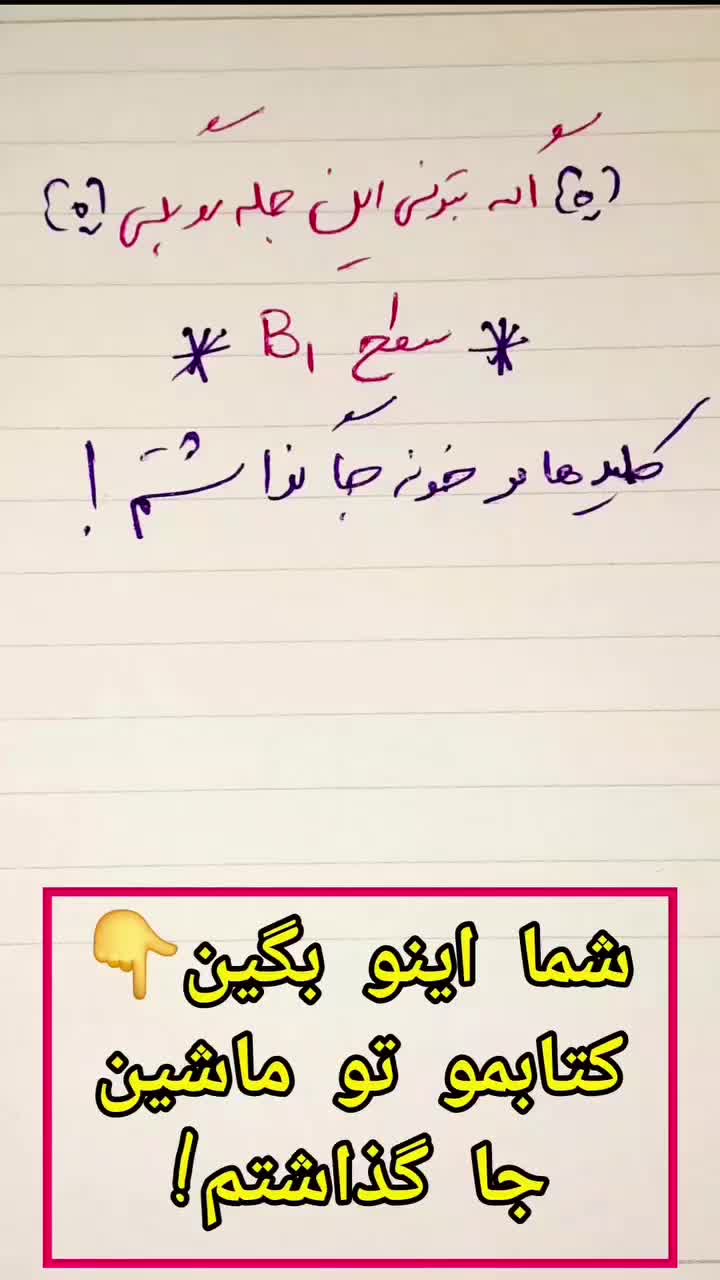 {ه} اگه بتونی این جمله رو بگی {ه}
* سطح B1 *
کلیدهامو خونه جا گذاشتم!
شما اینو بگین👇
کتابمو تو ماشین
جا گذاشتم!